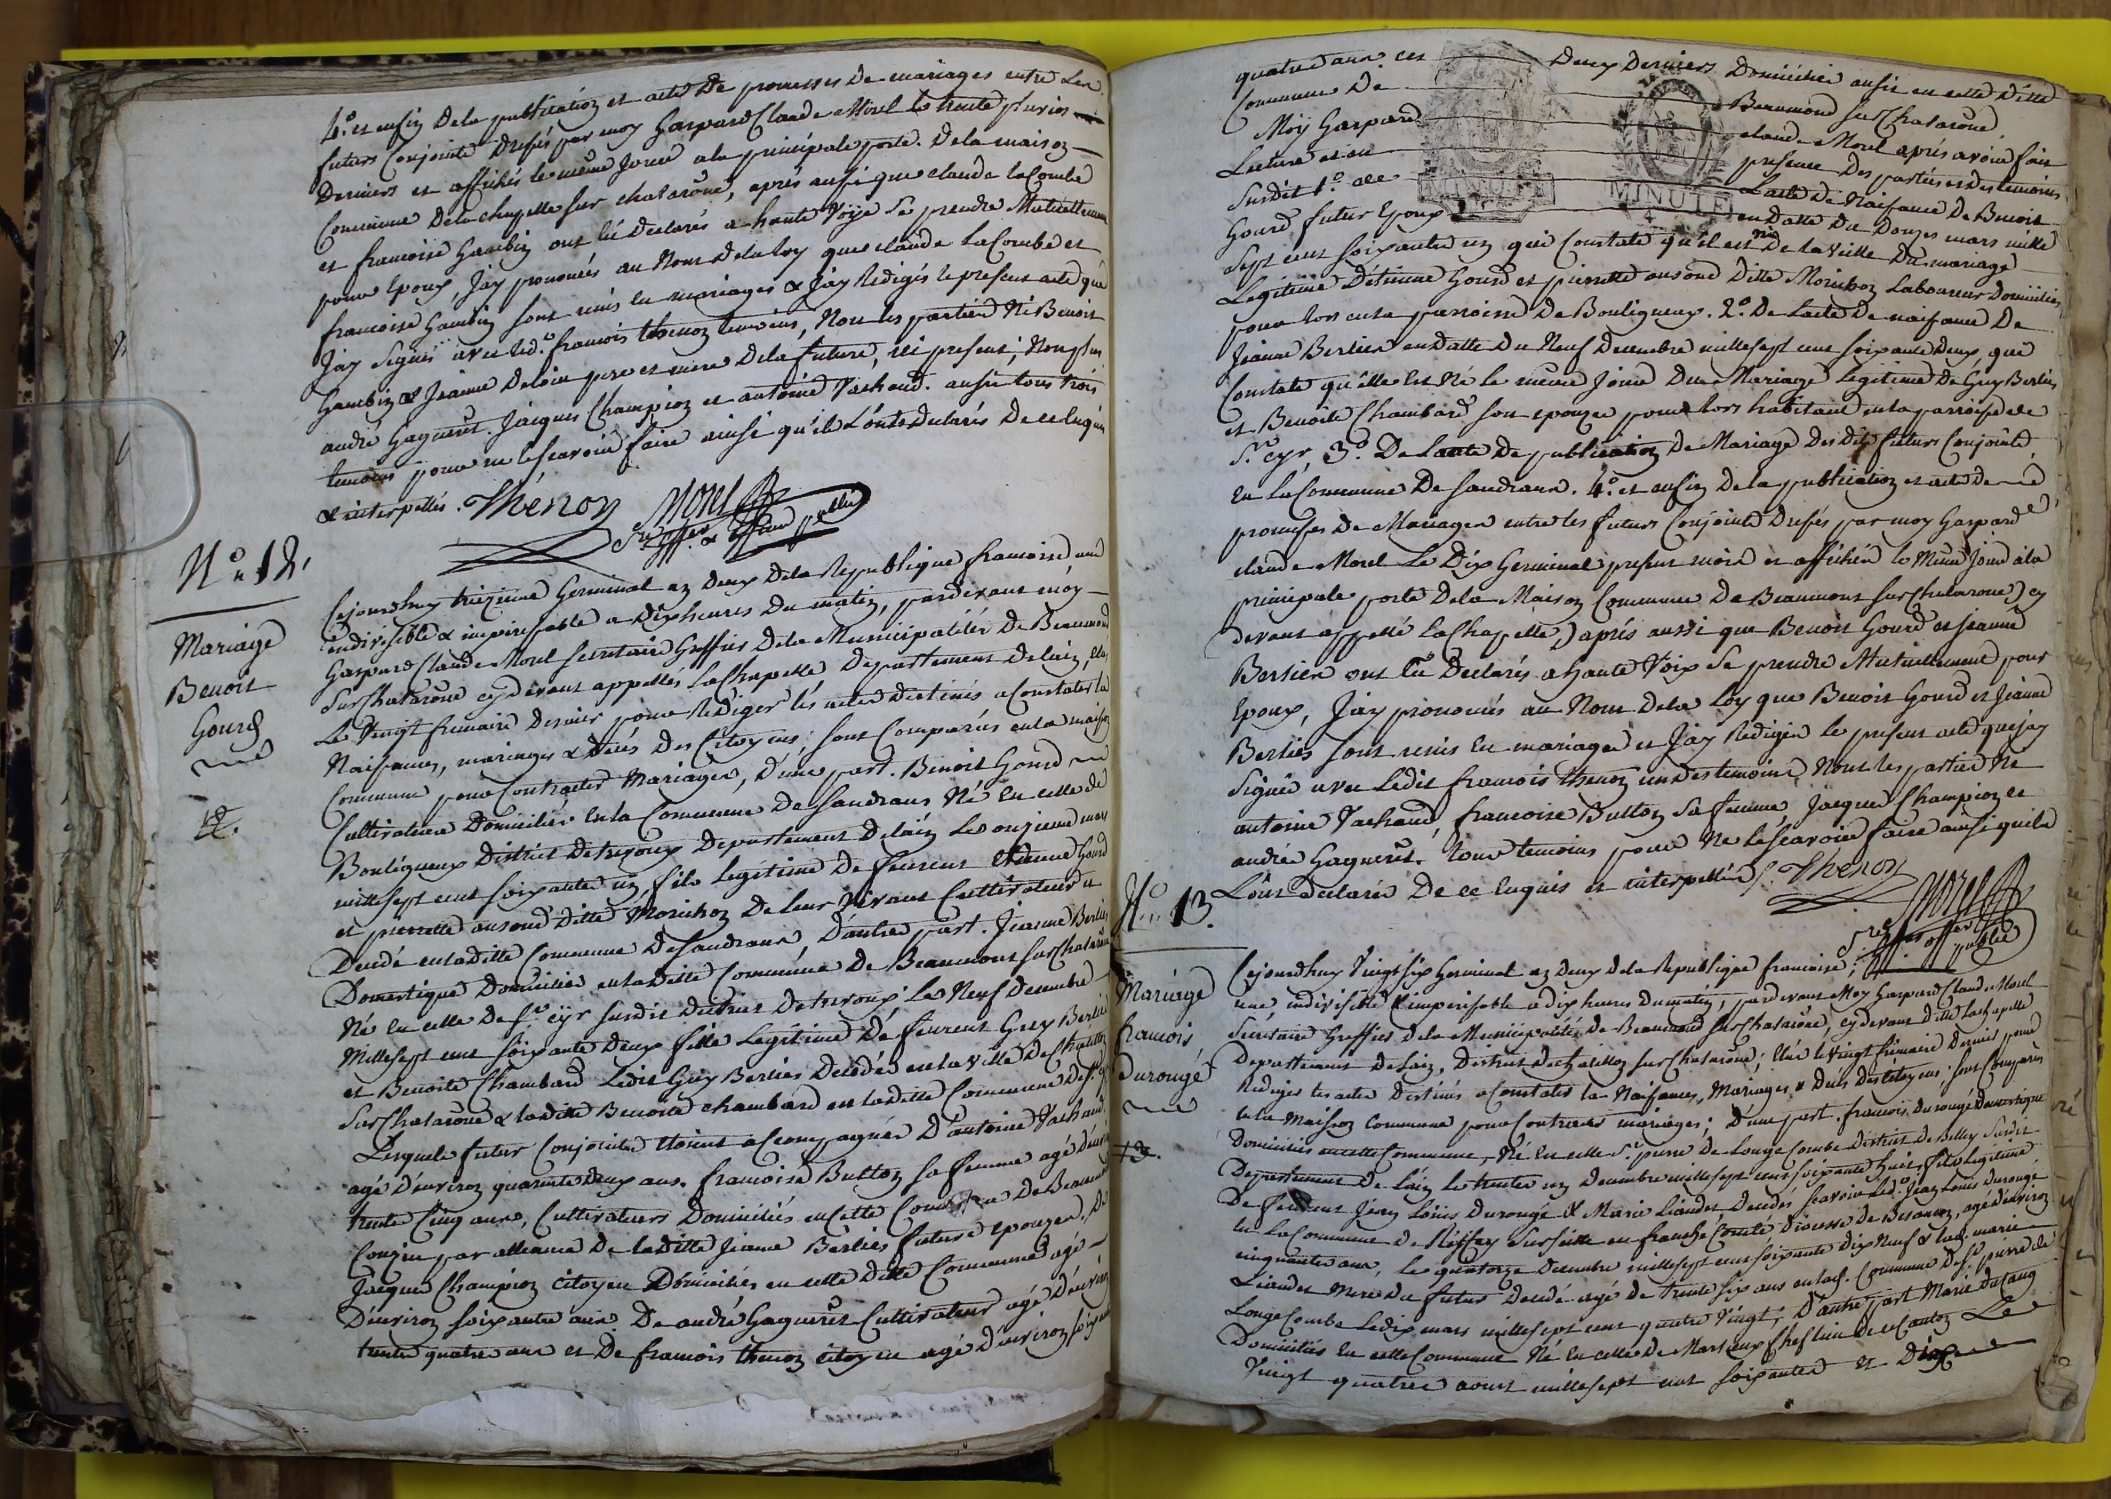 4.° et enfin de la publication et acte de promesses de mariages entre les
futurs Conjoints dressés par moy Gaspard Claude Morel le trente pluvios
derniers et affichés le même jour a la principale porte de la maison
Commune de la chapelle sur chalarone, aprés aussi que claude laCombe
et francoise Gambin ont eté declarés a haute Voye se prendre Mutuellement
pour Epoux, Jay pronouces au Nom de la loy que claude LaCombe et
francoise Gambin sont unis en mariages & Jay Redigés le present acte que
Jay Signés avec led.t francois thenon temoins, Non les parties Ni Benoit
Gambin & Jeanne pere et mere de la future, ici present; Non plus
andré Gagneret Jacques Champion et antoine Vachaud. aussi tous trois
temoins pour ne le scavoir faire ainsi qu'ils L'ont declarés de ce enquis
& interpellés. Thénon Morel
Sre Greffier & offic. publi
N.° 12.
Mariage
Benoit
Gourd
12.
Cejourdhuy treizieme Germinal an deux de la Republique francoise une
indivisible & imperissable a dix heures du matin, pardevant moy
Gaspard Claude Morel secretaire Greffier de la Municipalités de Beaumond
Sur Chalarone cy devant appellés LaChapelle departement de lain, elus
Le Vingt frimaire dernier pour rediger les actes destinés a Constater la
Naissances, mariages & decés des Citoyens: sont Comparus en la maison
Commune pour Contracter Mariages, d'une part. Benoit Gourd
Cultivateur Domicilier en la Commune de Sandrans Né en celle de
Bouligneux District de trevoux departement de lain le onzieme mars
mille sept cent soixante un, fils legitime de feurent Etienne Gourd
et pierrette ansond ditte Morichon de leur Vivant Cultivateur a
Decedé en ladite Commune de Sandrans, d'autre part. Jeanne Berlier
Domestique Domicilié en ladite Commune de Beaumont sur Chalarone
Né en celle de St cyr susdit district de trevoux; le Neuf decembre
Mille sept cent soixante deux fille Legitime de feurent Guy Berlier
et Benoite Chambard ledit Guy Berlier Decedés en la ville de Chatillon
Sur Chalarone & ladite Benoite chambard en ladite Commune de St Cyr
Lesquels futur Conjointes etoient accompagnés D'antoine Vachaud
agé d'environ quarante deux ans. francoise Button sa femme agé d'environ
trente Cinq ans, Cultivateurs Domiciliés en cette Commune de Beaumont
Couzin par alliance de ladite Jeanne Berlier future epouzee, De
Jacque Champion citoyen Domicilier en celle ditte Commune agé
d'environ soixante ans. De andré Gagneret Cultivateur agé d'environ
trente quatre ans et de francois thenon citoyen agé d'environ soixante
quatre ans ces deux derniers domicilié aussi en cette ditte
Commune de Beaumond sur Chalarone
Moy Gaspard claude Morel aprés avoir fait
Lecture et en presence des parties et des temoins
Susdit 1.° de L'acte de Naissance de Benoit
Gourd futur Epoux en Datte du Douze mars mille
MINUTE
MINUTE
Sept cent soixante un qui Constate qu'il est né de la veille du mariage
Legitime D'étienne Gourd et pierrette ansond ditte Morichon Laboureur Domicilier
pour lors en la parroisse de Bouligneux. 2.° De l'acte de naissance De
Jeanne Berlier en Datte du Neuf decembre mille sept cent soixante deux, qui
Constate qu'elle est Né le même jour du Mariage legitime de Guy Berlier
et Benoite Chambard son epouzee pour lors habitant en la parroisse de
St cyr, 3.° De L'acte de publication de Mariage desdits futurs Conjoints,
En La Commune de Sandrans. 4.° et enfin de la publication et acte de
promesses de Mariages entre les futurs Conjoints dressés par moy Gaspard
claude Morel Le Dix Germinal present mois et affichés le Même jour a la
principale porte de la Maison Commune de Beaumont sur chalarone) cy
devant appellé laChapelle,) aprés aussi que Benoit Gourd et Jeanne
Berlier ont Eté Declarés a haute Voix se prendre Mutuellement pour
Epoux, Jay pronouces au Nom de la Loy que Benoit Gourd et Jeanne
Berlier sont unis en mariages et Jay Rediger le present acte que jay
Signée avec Ledit francois thenon un des temoins, Non les parties Ne
antoine Vachaud, francoise Button sa femme, Jacque Champion et
andré Gagneret. tous temoins pour Ne le Scavoir faire ainsi quils
L'ont Declarés De ce Enquis et interpellés /. Thénon
Morel
Sre Greffier offic.
publié
N.° 13.
Mariage
francois
Durougé
13.
Cejourdhuy Vingt six Germinal an deux de la Republique francoise;
une indivisible & imperissable a dix heures du matin, pardevant Moy Gaspard Claude Morel
Secretaire Greffier de la Municipalité de Beaumond sur Chalarone, cy devant ditte Lachapelle
Departement de Lain, District de Chatillon sur Chalarone; Elus le Vingt frimaire Dernier pour
Rediger les actes Destinés a Constater la Naissances, Mariages & Decés des Citoyens; sont Comparus
en la Maison Commune pour Contracter mariages; D'une part. francois durougé domestique
Domiciliés en cette Commune, Né en celle St pierre de Longe Combe District de Belley Susdit
Departement de Lain le trente un decembre mille sept cent soixante huit, fils legitime
De feurent Jean Louis Durougé & Marie Liandet Decedés scavoir led.t Jean Louis durougé
en la Commune de en franche Comté Diocesse de Besançon, agé d'environ
cinquante ans, le quatorze decembre mille sept cent soixante dix Neuf & lad. marie
Liandet Mere du futur decedé agé de trente six ans en lad. Commune de St pierre de
Longe Combe Ledix mars mille sept cent quatre Vingt; D'autre part Marie ducaug
Domiciliés en cette Commune Né En celle de Marlieux Chef lieu de ce Canton Le
Vingt quatre aoust mille sept cent soixante et Dix